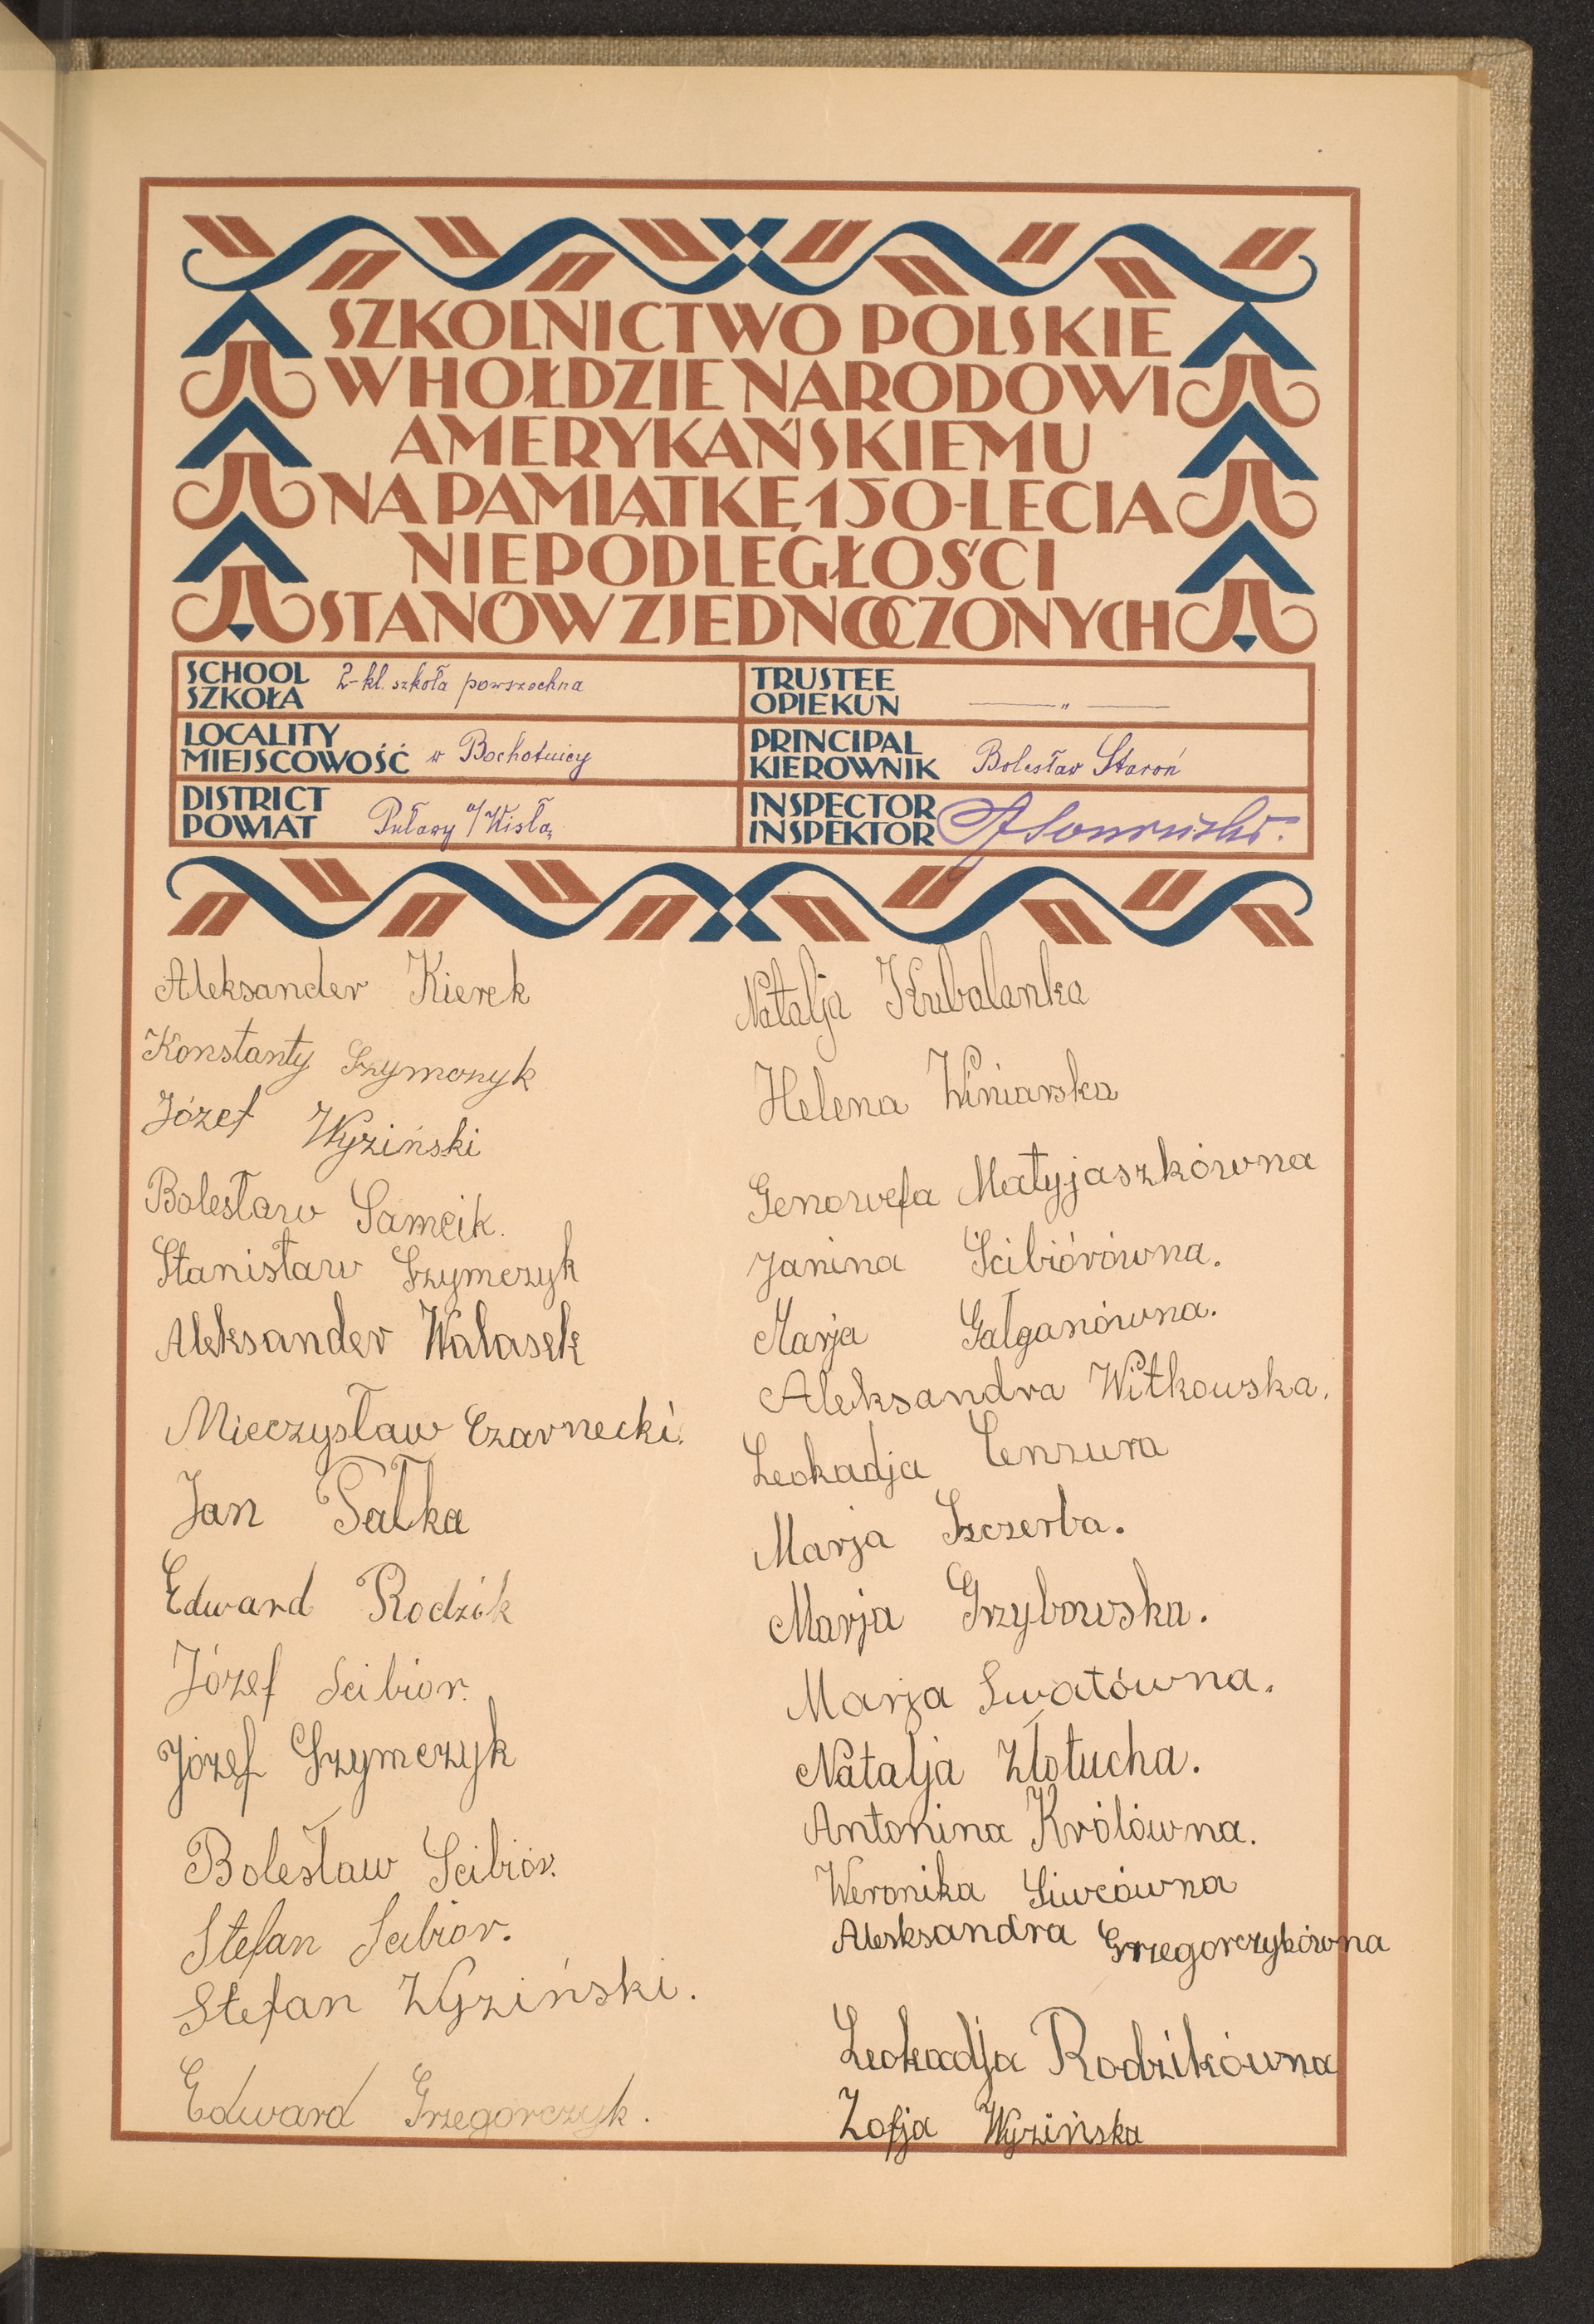 SZKOLNICTWO POLSKIE
W HOŁDZIE NARODOWI
AMERYKAŃSKIEMU
NA PAMIĄTKĘ 150-LECIA
NIEPODLEGŁOŚCI
STANÓW ZJEDNOCZONYCH
SCHOOL
SZKOŁA 2-kl. szkoła powszechna
TRUSTEE
OPIEKUN — " —
LOCALITY
MIEJSCOWOŚĆ w Bochotnicy
PRINCIPAL
KIEROWNIK Bolesław Staroń
DISTRICT
POWIAT Puławy n/Wisłą
INSPECTOR
INSPEKTOR
Aleksander Kierek
Konstanty Szymczyk
Józef Wyziński
Bolesław Samcik.
Stanisław Szymczyk
Aleksander Walasek
Mieczysław Czarnecki.
Jan Pałka
Edward Rodzik
Józef Scibior.
Józef Szymczyk
Bolesław Scibiór.
Stefan Scibior.
Stefan Wyziński.
Edward Grzegorczyk.
Natalja Kubalanka
Helena Winiarska
Genowefa Matyjaszkówna
Janina Ścibiórówna.
Marja Gałganówna.
Aleksandra Witkowska.
Leokadja Cenzura
Marja Szczerba.
Marja Grzybowska.
Marja Swatówna.
Natalja Złotucha.
Antonina Królówna.
Weronika Siwcówna
Alesksandra Grzegorczykówna
Leokadja Rodzikówna
Zofja Wyzińska